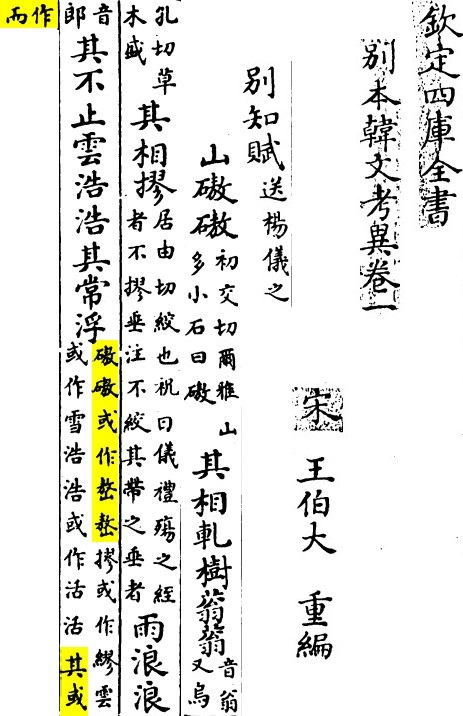 欽定四庫全書
別本韓文考異卷一
宋 王伯大 重編
別知賦送楊儀之
山磝磝初交切爾雅山多小石曰磝其相軋樹蓊蓊音翁又烏
孔切草木盛其相摎居由切絞也祝曰儀禮殤之絰者不摎垂注不絞其帶之垂者雨浪浪
音郎其不止雲浩浩其常浮磝磝或作嶅嶅摎或作繆雲或作雪浩浩或作活活其或
作而